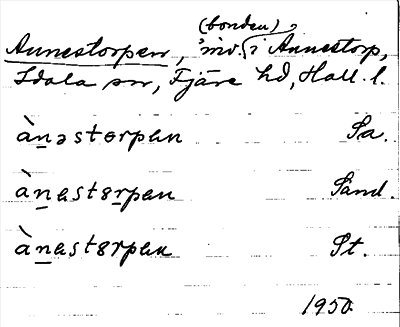 (bonden)
Annestorpen, inv. i Annestorp,
Idala sn, Fjäre hd, Hall. l.
ànəstorpan Sa.
ànastɞrpan Sand.
ànastɞrpan St.
1950.